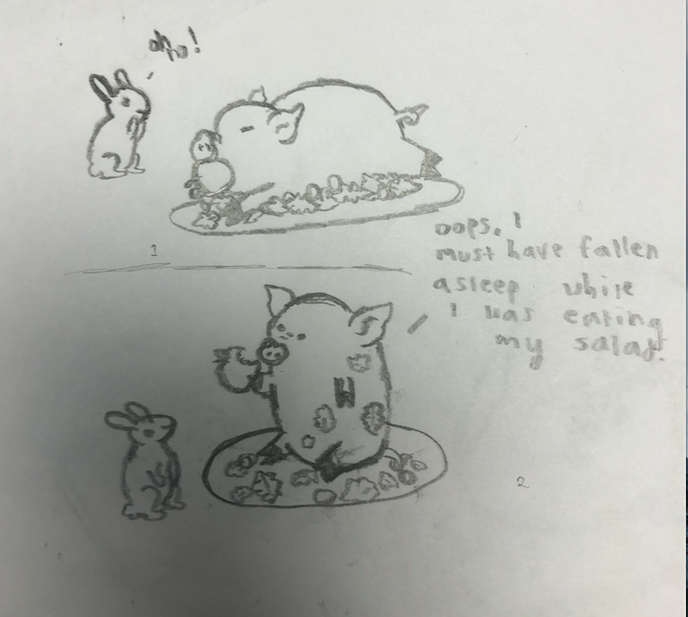 oh no!
1
oops. I
must have fallen
asleep while
I was eating
my salad.
2